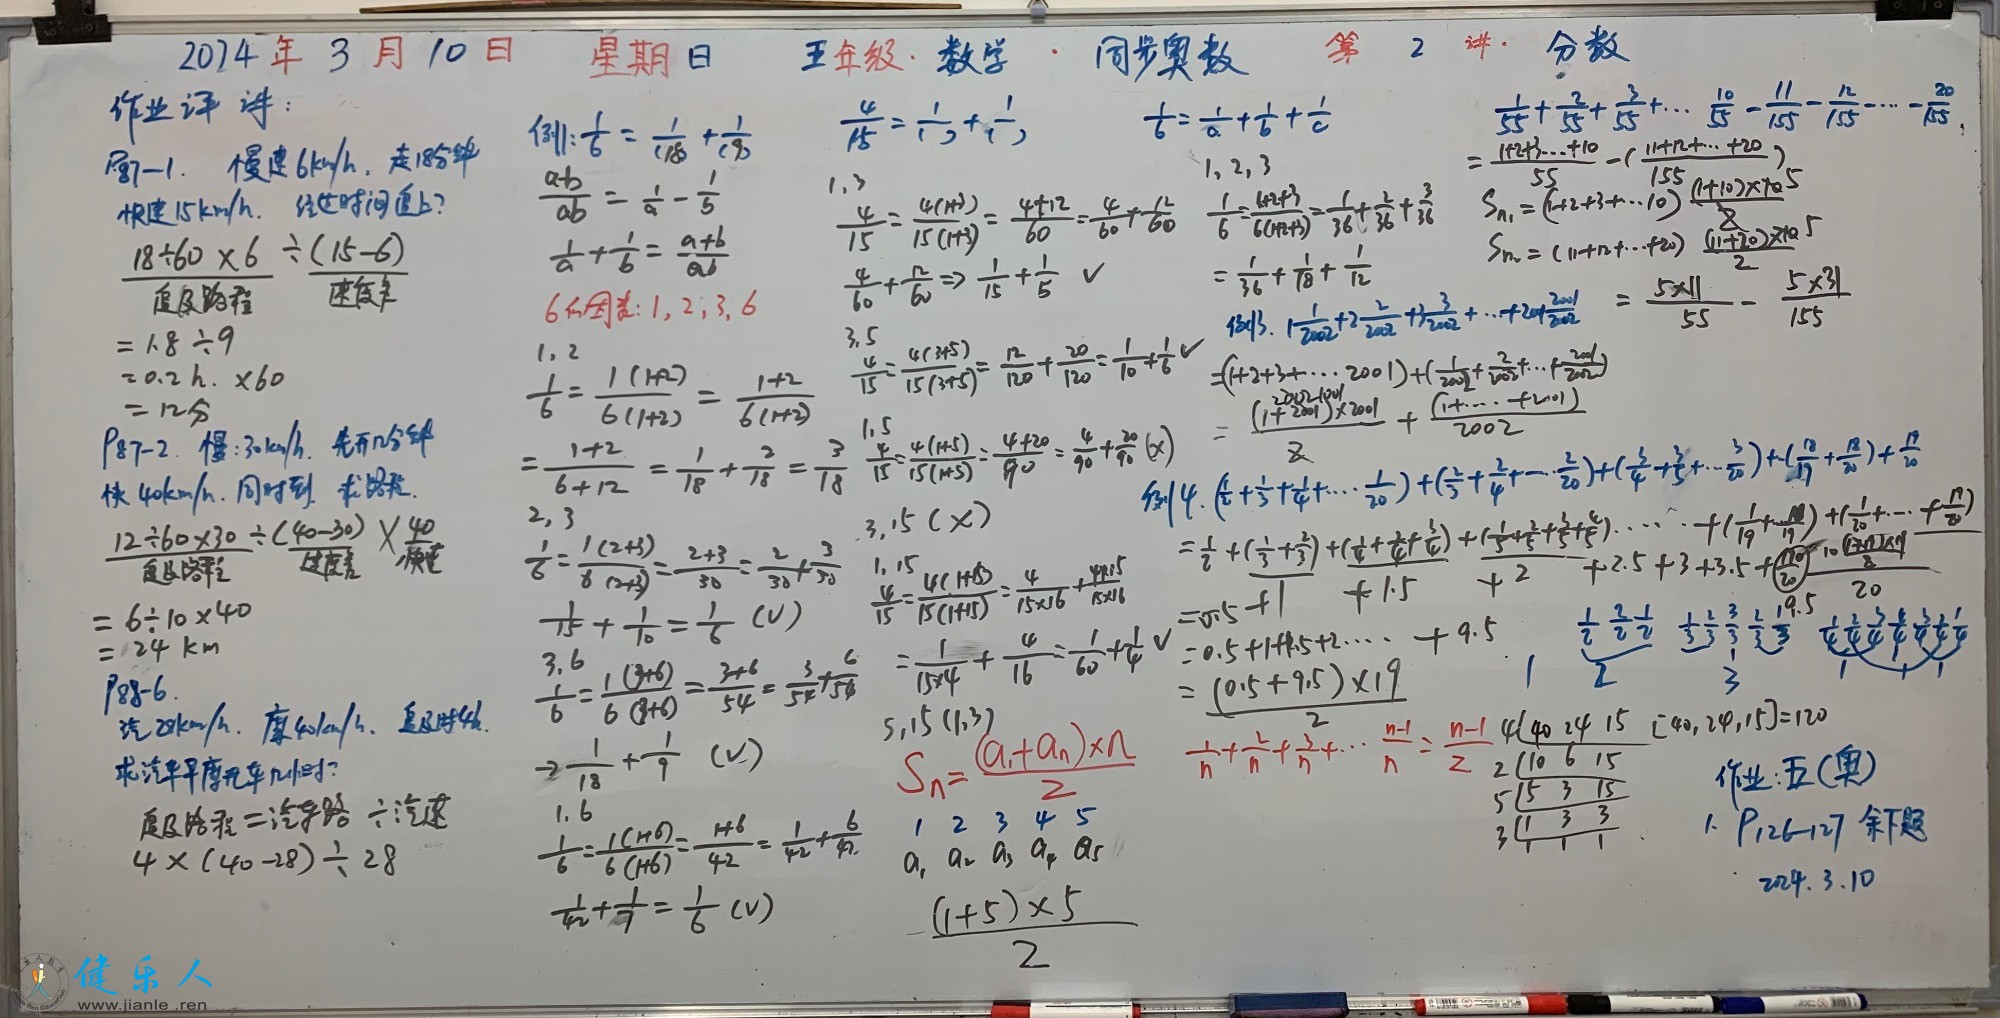 2024年3月10日 星期日 五年级·数学·同步奥数 第2讲·分数
作业评讲:
P87-1. 慢速6km/h, 走18分钟
快速15km/h. 经过时间追上?
18÷60×6 ÷ (15-6)
追及路程 速度差
=1.8÷9
=0.2h. ×60
=12分
P87-2. 慢:30km/h. 先开12分钟
快40km/h. 同时到 求路程.
12÷60×30÷(40-30)×40
追及路程 速度差 快速
=6÷10×40
=24km
P88-6.
汽28km/h. 摩40km/h. 追及时4h.
求汽车早摩托车几小时?
追及路程=汽车路÷汽速
4×(40-28)÷28
例1: 1/6 = 1/(18) + 1/(9)
a-b/ab = 1/a - 1/b
1/a + 1/b = a+b/ab
6的因数: 1, 2, 3, 6
1, 2
1/6 = 1(1+2)/6(1+2) = 1+2/6(1+2)
= 1+2/6+12 = 1/18 + 2/18 = 3/18
2, 3
1/6 = 1(2+3)/6(2+3) = 2+3/30 = 2/30 + 3/30
1/15 + 1/10 = 1/6 (√)
3, 6
1/6 = 1(3+6)/6(3+6) = 3+6/54 = 3/54 + 6/54
→ 1/18 + 1/9 (√)
1, 6
1/6 = 1(1+6)/6(1+6) = 1+6/42 = 1/42 + 6/42
1/42 + 1/7 = 1/6 (√)
4/15 = 1/( ) + 1/( )
1, 3
4/15 = 4(1+3)/15(1+3) = 4+12/60 = 4/60 + 12/60
4/60 + 12/60 ⇒ 1/15 + 1/5 √
3, 5
4/15 = 4(3+5)/15(3+5) = 12/120 + 20/120 = 1/10 + 1/6 √
1, 5
4/15 = 4(1+5)/15(1+5) = 4+20/90 = 4/90 + 20/90 (×)
3, 15 (×)
1, 15
4/15 = 4(1+15)/15(1+15) = 4/15×16 + 4×15/15×16
= 1/15×4 + 4/16 = 1/60 + 1/4 √
5, 15 (1, 3)
Sn = (a₁+an)×n/2
1 2 3 4 5
a₁ a₂ a₃ a₄ a₅
(1+5)×5/2
1/6 = 1/a + 1/b + 1/c
1, 2, 3
1/6 = 1+2+3/6(1+2+3) = 1/36 + 2/36 + 3/36
= 1/36 + 1/18 + 1/12
例3. 1 1/2002 + 2 2/2002 + 3 3/2002 + … + 2001 2001/2002
=(1+2+3+…2001)+(1/2002+2/2002+…+2001/2002)
= (1+2001)×2001/2 + (1+…+2001)/2002
例4. (1/2+1/3+1/4+…1/20)+(2/3+2/4+…2/20)+(3/4+3/5+…3/20)+(18/19+18/20)+19/20
=1/2+(1/3+2/3)+(1/4+2/4+3/4)+(1/5+2/5+3/5+4/5)……+(1/19+…18/19)+(1/20+…+19/20)
=0.5+1+1.5+2+2.5+3+3.5+
=0.5+1+1.5+2…… +9.5
= (0.5+9.5)×19/2
1/n+2/n+3/n+…n-1/n = n-1/2
1/55+2/55+3/55+…10/55-11/155-12/155-…-20/155
= 1+2+3…+10/55 - (11+12+…+20/155)
Sn₁=(1+2+3+…10) (1+10)×10/2 5
Sn₂=(11+12+…+20) (11+20)×10/2 5
= 5×11/55 - 5×31/155
1/2 2/2 1/2 1/3 2/3 3/3 2/3 1/3 1/4 2/4 3/4 4/4 3/4 2/4 1/4
1 2 3
4 40 24 15 [40,24,15]=120
2 10 6 15
5 5 3 15
3 1 3 3
1 1 1
作业: 五(奥)
1. P126-127 余下题
2024.3.10
健乐人
www.jianle.ren